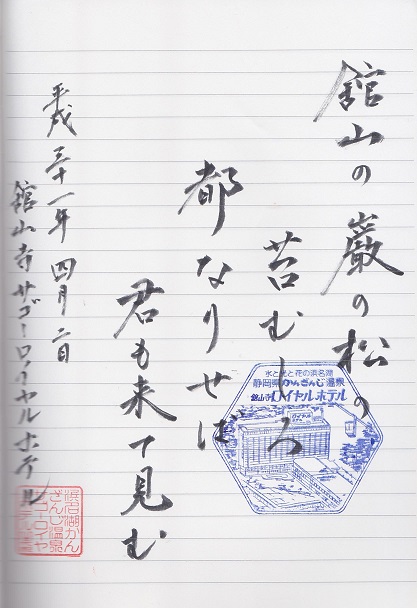 舘山の巌の松の
苔むしろ
都なりせば
君も来て見む
平成三十一年四月二日
舘山寺サゴーロイヤルホテル
水と光と花の浜名湖
静岡県かんざんじ温泉
舘山寺ロイヤルホテル
浜名湖かん
ざんじ温泉
ゴーロイヤ